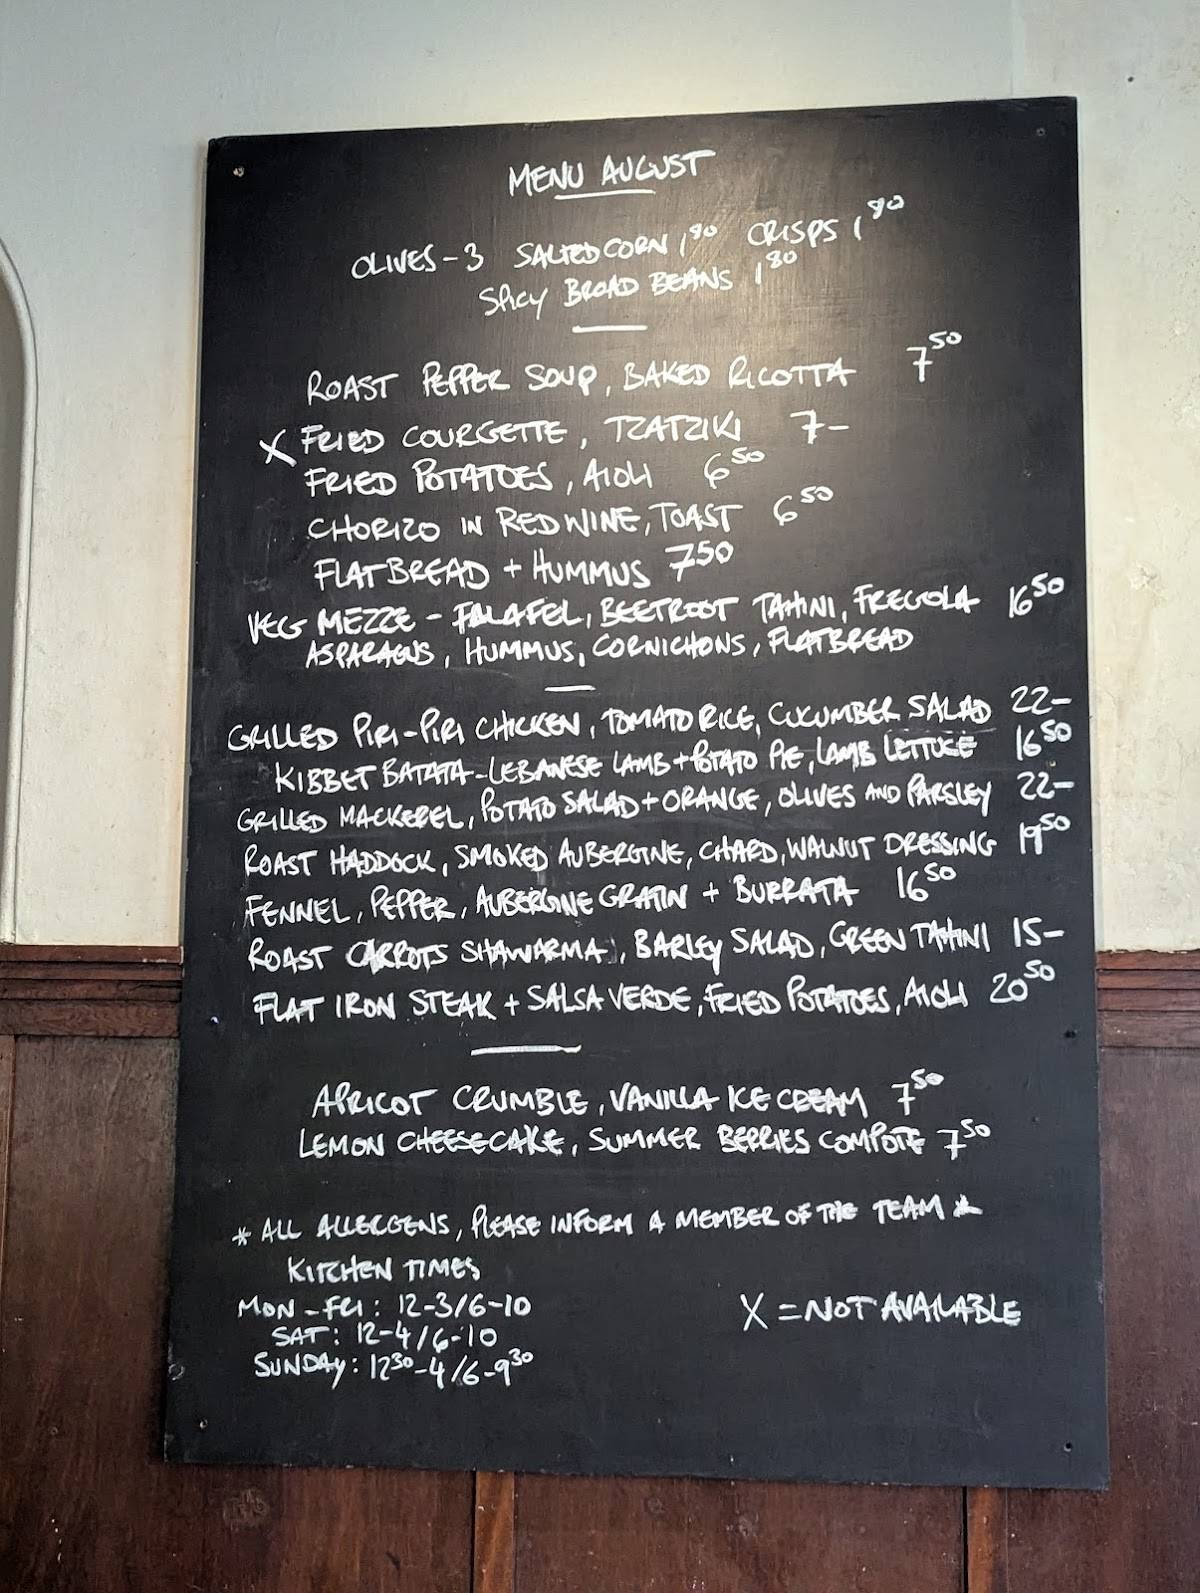 MENU AUGUST
OLIVES - 3 SALTED CORN 1,80 CRISPS 1,80
SPICY BROAD BEANS 1,80
ROAST PEPPER SOUP, BAKED RICOTTA 7 50
X FRIED COURGETTE, TZATZIKI 7-
FRIED POTATOES, AIOLI 6 50
CHORIZO IN RED WINE, TOAST 6 50
FLATBREAD + HUMMUS 7 50
VEG MEZZE - FALAFEL, BEETROOT TAHINI, FREGOLA 16 50
ASPARAGUS, HUMMUS, CORNICHONS, FLATBREAD
GRILLED PIRI-PIRI CHICKEN, TOMATO RICE, CUCUMBER SALAD 22-
KIBBET BATATA - LEBANESE LAMB + POTATO PIE, LAMB LETTUCE 16 50
GRILLED MACKEREL, POTATO SALAD + ORANGE, OLIVES AND PARSLEY 22-
ROAST HADDOCK, SMOKED AUBERGINE, CHARD, WALNUT DRESSING 19 50
FENNEL, PEPPER, AUBERGINE GRATIN + BURRATA 16 50
ROAST CARROTS SHAWARMA, BARLEY SALAD, GREEN TAHINI 15-
FLAT IRON STEAK + SALSA VERDE, FRIED POTATOES, AIOLI 20 50
APRICOT CRUMBLE, VANILLA ICE CREAM 7 50
LEMON CHEESECAKE, SUMMER BERRIES COMPOTE 7 50
* ALL ALLERGENS, PLEASE INFORM A MEMBER OF THE TEAM *
KITCHEN TIMES
MON - FRI: 12-3/6-10
X = NOT AVAILABLE
SAT: 12-4/6-10
SUNDAY: 12 30-4/6-9 30